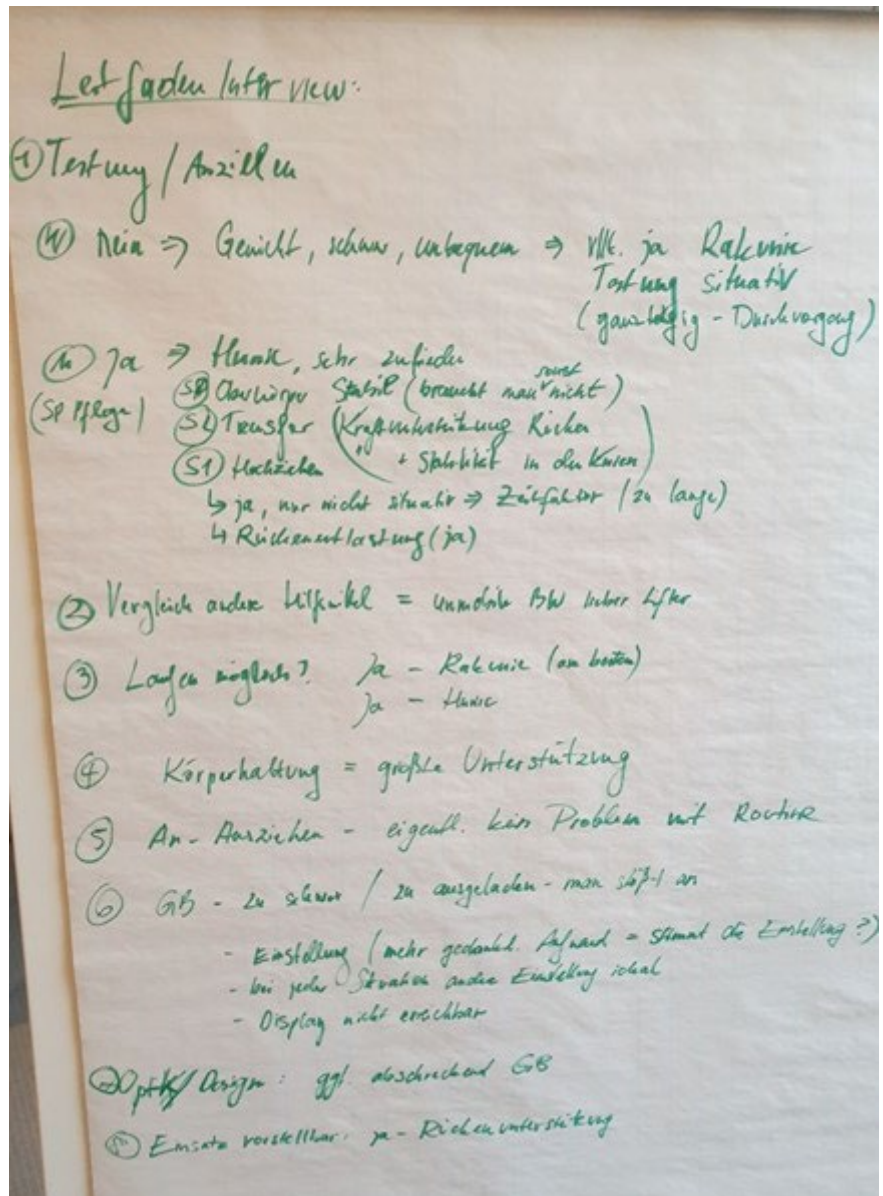 Leitfaden Interview:
① Testung / Anziehen
Ⓦ Nein ⇒ Gewicht, schwer, unbequem ⇒ vllt. ja Rakunie
Testung situativ
(ganztägig - Durchvorgang)
Ⓜ Ja ⇒ Hunic, sehr zufrieden
(SP Pflege)
Oberkörper Stabil (braucht man sonst nicht)
S2 Transfer (Kraftunterstützung Rücken
S1 Hochziehen " + Stabilität in den Knien)
↳ ja, nur nicht situativ ⇒ Zeitfaktor (zu lange)
↳ Rückenentlastung (ja)
② Vergleich andere Hilfsmittel = unmobile BW lieber Lifter
③ Laufen möglich? Ja - Rakunie (am besten)
Ja - Hunic
④ Körperhaltung = größte Unterstützung
⑤ An-Ausziehen - eigentl. kein Problem mit Routine
⑥ GB - zu schwer / zu ausgeladen - man stößt an
- Einstellung (mehr gedankl. Aufwand = stimmt die Einstellung?)
- bei jeder Situation andere Einstellung ideal
- Display nicht erreichbar
⑦ Optik/Design: ggf. abschreckend GB
⑧ Einsatz vorstellbar: ja - Rückenunterstützung